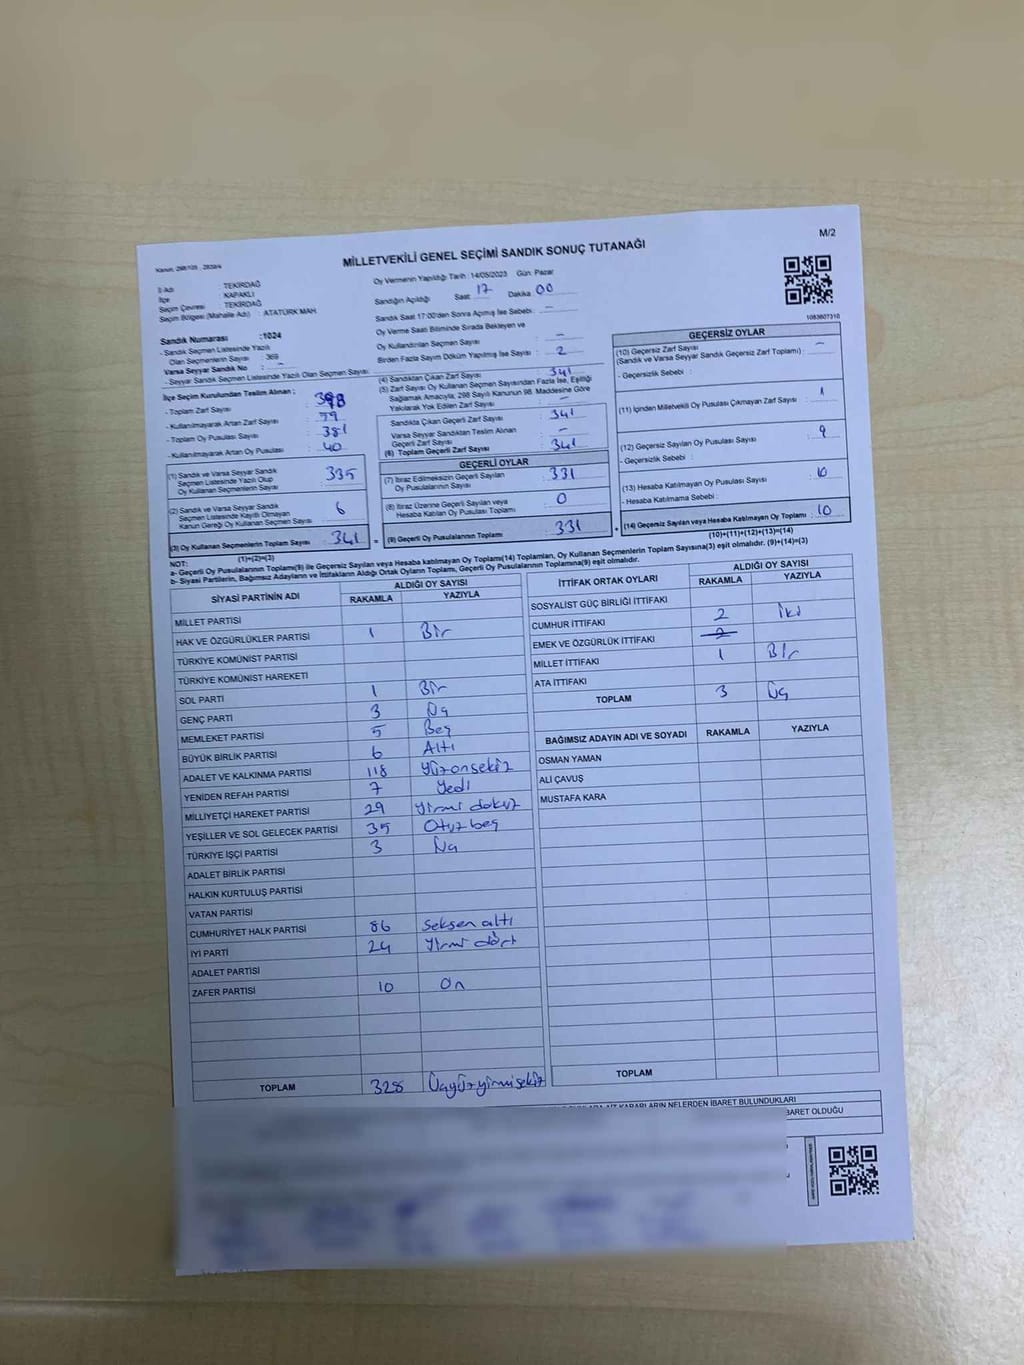 M/2
Kanun: 298/105 - 2839/4
MİLLETVEKİLİ GENEL SEÇİMİ SANDIK SONUÇ TUTANAĞI
İl Adı : TEKİRDAĞ
İlçe : KAPAKLI
Seçim Çevresi : TEKİRDAĞ
Seçim Bölgesi (Mahalle Adı) : ATATÜRK MAH
Sandık Numarası :1024
- Sandık Seçmen Listesinde Yazılı
Olan Seçmenlerin Sayısı : 369
Varsa Seyyar Sandık No : -
- Seyyar Sandık Seçmen Listesinde Yazılı Olan Seçmen Sayısı:
Oy Vermenin Yapıldığı Tarih :14/05/2023 Gün: Pazar
Sandığın Açıldığı Saat 17 Dakika 00
Sandık Saat 17:00'den Sonra Açılmış İse Sebebi: -
Oy Verme Saati Bitiminde Sırada Bekleyen ve
Oy Kullandırılan Seçmen Sayısı : -
Birden Fazla Sayım Döküm Yapılmış İse Sayısı : 2
1083607310
İlçe Seçim Kurulundan Teslim Alınan ;
- Toplam Zarf Sayısı :
- Kullanılmayarak Artan Zarf Sayısı : 39
- Toplam Oy Pusulası Sayısı : 381
- Kullanılmayarak Artan Oy Pusulası : 40
(1) Sandık ve Varsa Seyyar Sandık
Seçmen Listesinde Yazılı Olup
Oy Kullanan Seçmenlerin Sayısı : 335
(2) Sandık ve Varsa Seyyar Sandık
Seçmen Listesinde Kayıtlı Olmayan
Kanun Gereği Oy Kullanan Seçmen Sayısı : 6
(3) Oy Kullanan Seçmenlerin Toplam Sayısı : 341
(1)+(2)=(3)
(4) Sandıktan Çıkan Zarf Sayısı : 341
(5) Zarf Sayısı Oy Kullanan Seçmen Sayısından Fazla İse, Eşitliği
Sağlamak Amacıyla; 298 Sayılı Kanunun 98. Maddesine Göre
Yakılarak Yok Edilen Zarf Sayısı : -
Sandıkta Çıkan Geçerli Zarf Sayısı : 341
Varsa Seyyar Sandıktan Teslim Alınan
Geçerli Zarf Sayısı : -
(6) Toplam Geçerli Zarf Sayısı : 341
GEÇERLİ OYLAR
(7) İtiraz Edilmeksizin Geçerli Sayılan
Oy Pusulalarının Sayısı : 331
(8) İtiraz Üzerine Geçerli Sayılan veya
Hesaba Katılan Oy Pusulası Toplamı : 0
(9) Geçerli Oy Pusulalarının Toplamı : 331
GEÇERSİZ OYLAR
(10) Geçersiz Zarf Sayısı
(Sandık ve Varsa Seyyar Sandık Geçersiz Zarf Toplamı) : -
- Geçersizlik Sebebi :
(11) İçinden Milletvekili Oy Pusulası Çıkmayan Zarf Sayısı : 1
(12) Geçersiz Sayılan Oy Pusulası Sayısı : 9
- Geçersizlik Sebebi :
(13) Hesaba Katılmayan Oy Pusulası Sayısı : 10
- Hesaba Katılmama Sebebi :
(14) Geçersiz Sayılan veya Hesaba Katılmayan Oy Toplamı : 10
(10)+(11)+(12)+(13)=(14)
NOT:
a- Geçerli Oy Pusulalarının Toplamı(9) ile Geçersiz Sayılan veya Hesaba katılmayan Oy Toplamı(14) Toplamları, Oy Kullanan Seçmenlerin Toplam Sayısına(3) eşit olmalıdır. (9)+(14)=(3)
b- Siyasi Partilerin, Bağımsız Adayların ve İttifakların Aldığı Ortak Oyların Toplamı, Geçerli Oy Pusulalarının Toplamına(9) eşit olmalıdır.
SİYASİ PARTİNİN ADI ALDIĞI OY SAYISI
RAKAMLA YAZIYLA
MİLLET PARTİSİ
HAK VE ÖZGÜRLÜKLER PARTİSİ 1 Bir
TÜRKİYE KOMÜNİST PARTİSİ
TÜRKİYE KOMÜNİST HAREKETİ
SOL PARTİ 1 Bir
GENÇ PARTİ 3 Üç
MEMLEKET PARTİSİ 5 Beş
BÜYÜK BİRLİK PARTİSİ 6 Altı
ADALET VE KALKINMA PARTİSİ 118 Yüzonsekiz
YENİDEN REFAH PARTİSİ 7 Yedi
MİLLİYETÇİ HAREKET PARTİSİ 29 Yirmi dokuz
YEŞİLLER VE SOL GELECEK PARTİSİ 35 Otuz beş
TÜRKİYE İŞÇİ PARTİSİ 3 Üç
ADALET BİRLİK PARTİSİ
HALKIN KURTULUŞ PARTİSİ
VATAN PARTİSİ
CUMHURİYET HALK PARTİSİ 86 Seksen altı
İYİ PARTİ 24 Yirmi dört
ADALET PARTİSİ
ZAFER PARTİSİ 10 On
TOPLAM 328 Üçyüzyirmisekiz
İTTİFAK ORTAK OYLARI ALDIĞI OY SAYISI
RAKAMLA YAZIYLA
SOSYALİST GÜÇ BİRLİĞİ İTTİFAKI
CUMHUR İTTİFAKI 2 İki
EMEK VE ÖZGÜRLÜK İTTİFAKI 2
MİLLET İTTİFAKI 1 Bir
ATA İTTİFAKI
TOPLAM 3 Üç
BAĞIMSIZ ADAYIN ADI VE SOYADI RAKAMLA YAZIYLA
OSMAN YAMAN
ALİ ÇAVUŞ
MUSTAFA KARA
TOPLAM
KARARLARIN NELERDEN İBARET BULUNDUKLARI
İBARET OLDUĞU